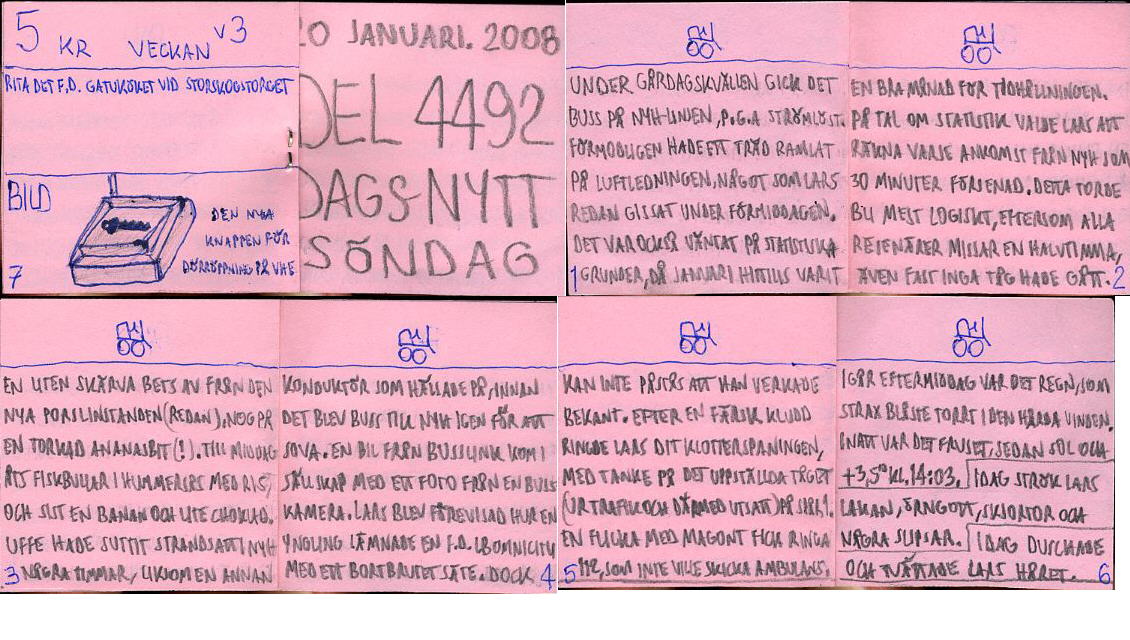 5 KR VECKAN V3
RITA DET F.D. GATUKÖKET VID STORSKOGSTORGET
BILD
DEN NYA
KNAPPEN FÖR
DÖRRÖPPNING PÅ VHE
7
20 JANUARI. 2008
DEL 4492
DAGS-NYTT
SÖNDAG
UNDER GÅRDAGSKVÄLLEN GICK DET
BUSS PÅ NYH-LINJEN, P.G.A STRÖMLÖST.
FÖRMODLIGEN HADE ETT TRÄD RAMLAT
PÅ LUFTLEDNINGEN, NÅGOT SOM LARS
REDAN GISSAT UNDER FÖRMIDDAGEN.
DET VAR OCKSÅ VÄNTAT PÅ STATISTISKA
1 GRUNDER, DÅ JANUARI HITTILLS VARIT
EN BRA MÅNAD FÖR TIDHÅLLNINGEN.
PÅ TAL OM STATISTIK VALDE LARS ATT
RÄKNA VARJE ANKOMST FRÅN NYH SOM
30 MINUTER FÖRSENAD. DETTA TORDE
BLI MEST LOGISKT, EFTERSOM ALLA
RESENÄRER MISSAR EN HALVTIMMA,
ÄVEN FAST INGA TÅG HADE GÅTT. 2
EN LITEN SKÄRVA BETS AV FRÅN DEN
NYA PORSLINSTANDEN (REDAN), NOG PÅ
EN TORKAD ANANASBIT (!). TILL MIDDAG
ÅTS FISKBULLAR I HUMMERSÅS MED RIS,
OCH SIST EN BANAN OCH LITE CHOKLAD.
UFFE HADE SUTTIT STRANDSATT I NYH
3 NÅGRA TIMMAR, LIKSOM EN ANNAN
KONDUKTÖR SOM HÄLLADE PÅ, INNAN
DET BLEV BUSS TILL NYH IGEN FÖR ATT
SOVA. EN BIL FRÅN BUSSLINK KOM I
SÄLLSKAP MED ETT FOTO FRÅN EN BUSS
KAMERA. LARS BLEV FÖREVISAD HUR EN
YNGLING LÄMNADE EN F.D. LBOMNICITY
MED ETT BORTBRUTET SÄTE. DOCK 4
KAN INTE PÅSTÅS ATT HAN VERKADE
BEKANT. EFTER EN FÄRSK KLUDD
RINGDE LARS DIT KLOTTERSPANINGEN,
MED TANKE PÅ DET UPPSTÄLLDA TÅGET
(UR TRAFIK OCH DÄRMED UTSATT) PÅ
EN FLICKA MED MAGONT FICK RINGA
5 112, SOM INTE VILLE SKICKA AMBULANS.
IGÅR EFTERMIDDAG VAR DET REGN, SOM
STRAX BLÅSTE TORRT I DEN HÅRDA VINDEN.
INATT VAR DET FRUSET, SEDAN SOL OCH
+3,5° KL. 14:03. IDAG STRÖK LARS
LAKAN, ÖRNGOTT, SKJORTOR OCH
NÅGRA SLIPSAR. IDAG DUSCHADE
OCH TVÄTTADE LARS HÅRET. 6